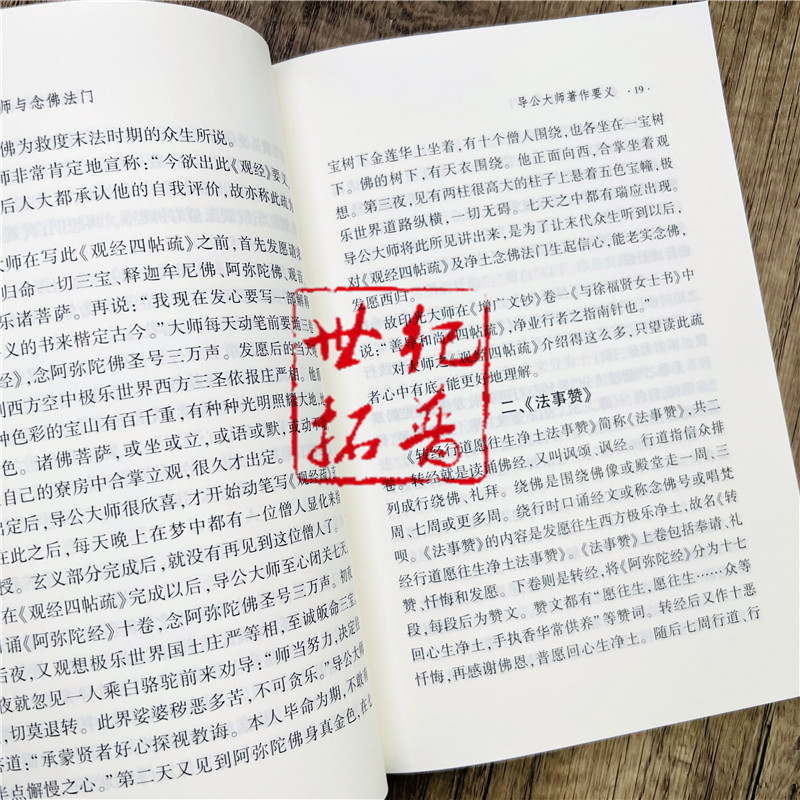 师与念佛法门
佛为救度末法时期的众生所说。
师非常肯定地宣称：“今欲出此《观经》要义，
后人大都承认他的自我评价，故亦称此疏为
大师在写此《观经四帖疏》之前，首先发愿请求
归命一切三宝、释迦牟尼佛、阿弥陀佛、观音
乐诸菩萨。再说：“我现在发心要写一部解释
义的书来楷定古今。”大师每天动笔前要诵三卷
经》，念阿弥陀佛圣号三万声。发愿后的当天
到西方空中极乐世界西方三圣依报庄严相。他
种色彩的宝山有百千重，有种种光明照耀大地，
色。诸佛菩萨，或坐或立，或语或默，或动
自己的寮房中合掌立观，很久才出定。
出定后，导公大师很欣喜，才开始动笔写《观经疏》
在此之后，每天晚上在梦中都有一位僧人显化来
授。玄义部分完成后，就没有再见到这位僧人了。
在《观经四帖疏》完成以后，导公大师至心闭关七天，
诵《阿弥陀经》十卷，念阿弥陀佛圣号三万声。初夜
后夜，又观想极乐世界国土庄严等相，至诚皈命三宝。
夜就忽见一人乘白骆驼前来劝导：“师当努力，决定往
，切莫退转。此界娑婆秽恶多苦，不可贪乐。”导公大师
答道：“承蒙贤者好心探视教诲。本人毕命为期，不敢
半点懈慢之心。”第二天又见到阿弥陀佛身真金色，在七
导公大师著作要义 ·19·
宝树下金莲华上坐着，有十个僧人围绕，也各坐在一宝树
下。佛的树下，有天衣围绕。他正面向西，合掌坐着观
想。第三夜，见有两柱很高大的柱子上悬着五色宝幢，极
乐世界道路纵横，一切无碍。七天之中都有瑞应出现。
导公大师将此所见讲出来，是为了让末代众生听到以后，
对《观经四帖疏》及净土念佛法门生起信心，能老实念佛，
发愿西归。
故印光大师在《增广文钞》卷一《与徐福贤女士书》中
说：“善导和尚《四帖疏》，净业行者之指南针也。”
对大师之《观经四帖疏》介绍得这么多，只望读此疏
者心中有底，能更好地理解。
二、《法事赞》
《转经行道愿往生净土法事赞》简称《法事赞》，共二
卷。转经就是读诵佛经，又叫讽颂、讽经。行道指信众排
列成行绕佛、礼拜。绕佛是围绕佛像或殿堂走一周、三
周、七周或更多周。绕行时口诵经文或称念佛号或唱梵
呗。《法事赞》的内容是发愿往生西方极乐净土，故名《转
经行道愿往生净土法事赞》。《法事赞》上卷包括奉请、礼
赞、忏悔和发愿。下卷则是转经，将《阿弥陀经》分为十七
段，每段后为赞文。赞文都有“愿往生，愿往生……众等
回心生净土，手执香华常供养”等赞词。转经后又作十恶
忏悔，再感谢佛恩，普愿回心生净土。随后七周行道、行
世纪
拓普